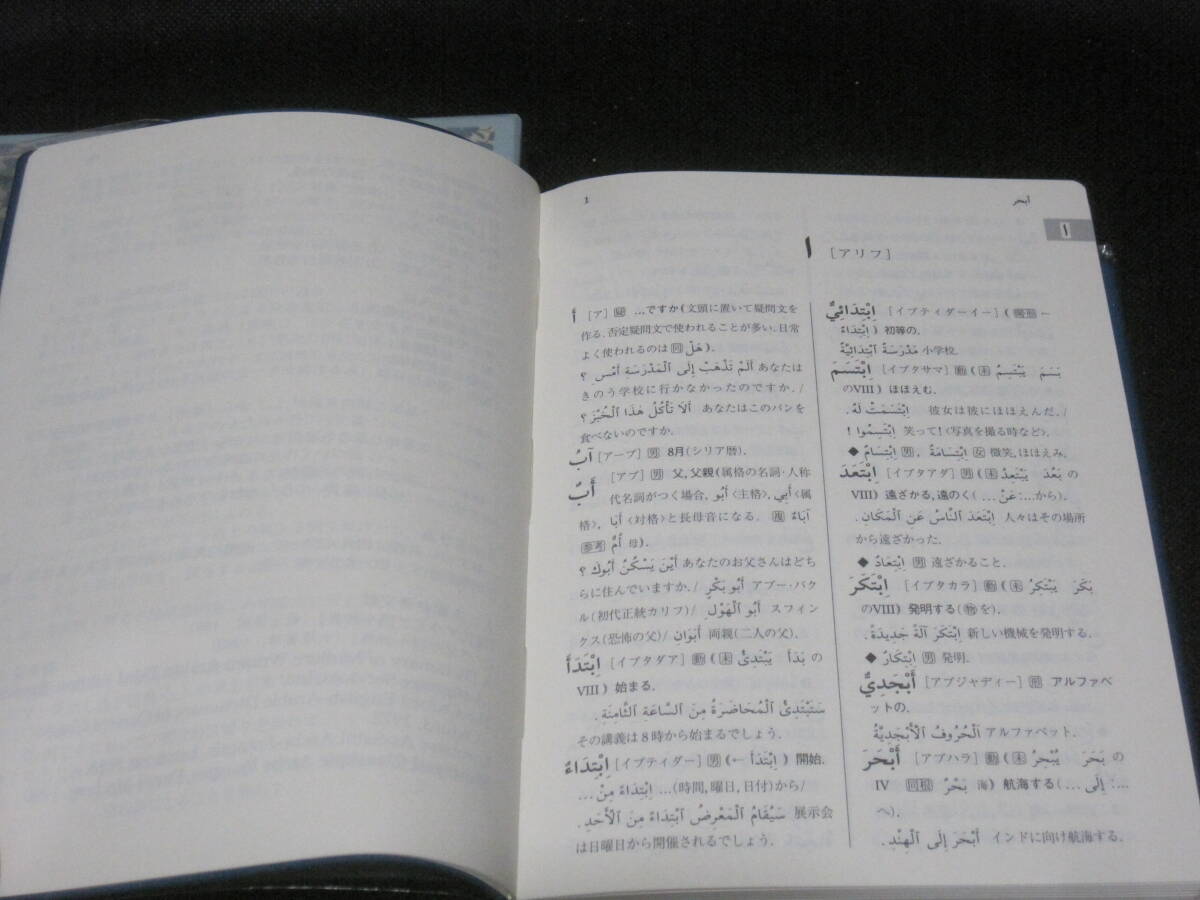 1
أبحر
ا
ا [アリフ]
أَ [ア] 疑 …ですか(文頭に置いて疑問文を
作る. 否定疑問文で使われることが多い. 日常
よく使われるのは 同 هَلْ).
أَلَمْ تَذْهَبْ إِلَى ٱلْمَدْرَسَةِ أَمْسِ ؟ あなたは
きのう学校に行かなかったのですか. /
أَلَا تَأْكُلُ هٰذَا ٱلْخُبْزَ ؟ あなたはこのパンを
食べないのですか.
آبُ [アーブ] 男 8月(シリア暦).
أَبٌ [アブ] 男 父, 父親(属格の名詞・人称
代名詞がつく場合, أَبُو〈主格〉, أَبِي〈属
格〉, أَبَا〈対格〉と長母音になる. 複 آبَاءٌ
参考 أُمٌّ 母).
أَيْنَ يَسْكُنُ أَبُوكَ ؟ あなたのお父さんはどち
らに住んでいますか. / أَبُو بَكْرٍ アブー・バク
ル(初代正統カリフ)/ أَبُو ٱلْهَوْلِ スフィン
クス(恐怖の父)/ أَبَوَانِ 両親(二人の父).
اِبْتَدَأَ [イブタダア] 動 (未 يَبْتَدِئُ بَدَأَ の
VIII) 始まる.
سَتَبْتَدِئُ ٱلْمُحَاضَرَةُ مِنَ ٱلسَّاعَةِ ٱلثَّامِنَةِ.
その講義は8時から始まるでしょう.
اِبْتِدَاءٌ [イブティダー] 男 (← اِبْتَدَأَ) 開始.
اِبْتِدَاءً مِنْ … …(時間, 曜日, 日付)から/
سَيُقَامُ ٱلْمَعْرِضُ ٱبْتِدَاءً مِنَ ٱلْأَحَدِ. 展示会
は日曜日から開催されるでしょう.
اِبْتِدَائِيٌّ [イブティダーイー] (関形 ←
اِبْتِدَاءٌ) 初等の.
مَدْرَسَةٌ ٱبْتِدَائِيَّةٌ 小学校.
اِبْتَسَمَ [イブタサマ] 動 (未 يَبْتَسِمُ بَسَمَ
のVIII) ほほえむ.
اِبْتَسَمَتْ لَهُ. 彼女は彼にほほえんだ. /
اِبْتَسِمُوا ! 笑って!〈写真を撮る時など〉.
◆ اِبْتِسَامٌ 男, اِبْتِسَامَةٌ 女 微笑, ほほえみ.
اِبْتَعَدَ [イブタアダ] 男 (未 يَبْتَعِدُ بَعُدَ の
VIII) 遠ざかる, 遠のく(… عَنْ:…から).
اِبْتَعَدَ ٱلنَّاسُ عَنِ ٱلْمَكَانِ. 人々はその場所
から遠ざかった.
◆ اِبْتِعَادٌ 男 遠ざかること.
اِبْتَكَرَ [イブタカラ] 動 (未 يَبْتَكِرُ بَكَرَ
のVIII) 発明する(物を).
اِبْتَكَرَ آلَةً جَدِيدَةً. 新しい機械を発明する.
◆ اِبْتِكَارٌ 男 発明.
أَبْجَدِيٌّ [アブジャディー] 形 アルファベ
ットの.
ٱلْحُرُوفُ ٱلْأَبْجَدِيَّةُ アルファベット.
أَبْحَرَ [アブハラ] 動 (未 يُبْحِرُ بَحَرَ の
IV 同根 بَحْرٌ 海) 航海する(… إِلَى:…
へ).
أَبْحَرَ إِلَى ٱلْهِنْدِ. インドに向け航海する.